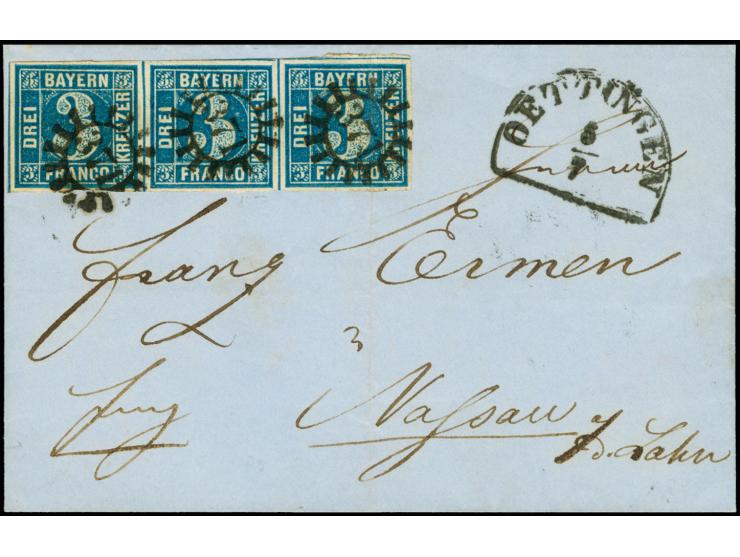 BAYERN BAYERN BAYERN
DREI 3 KREUZER DREI 3 KREUZER DREI 3 KREUZER
FRANCO FRANCO FRANCO
OETTINGEN
8
7
Franz Ermen
3
Nassau
a/d. Lahn